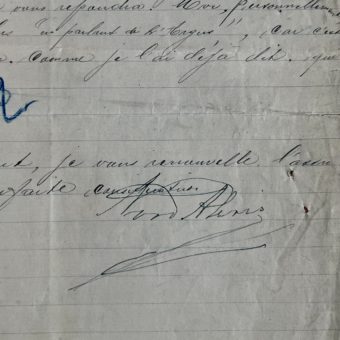 vous répondra. Moi, personnellement
"en parlant de l'Argus", car c'est
comme je l'ai déjà dit, que
je vous renouvelle l'assu
faite considération